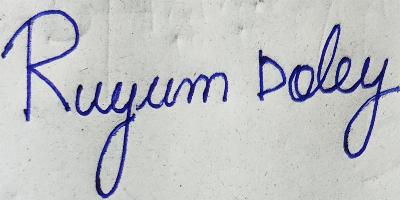 Ruyum Doley